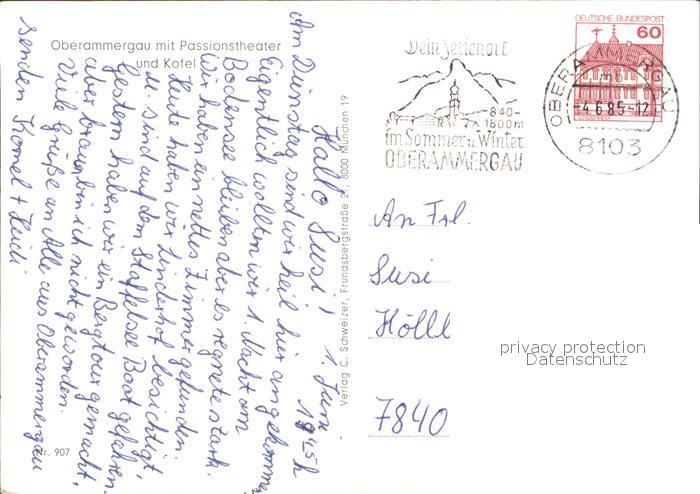 Oberammergau mit Passionstheater
und Kofel
Hallo Susi! 1. Juni
19 45 h
Am Dienstag sind wir heil hier angekommen.
Eigentlich wollten wir 1. Nacht am
Bodensee bleiben aber es regnete stark.
Wir haben ein nettes Zimmer gefunden.
Heute haben wir Linderhof besichtigt,
u. sind auf dem Staffelsee Boot gefahren.
Gestern haben wir ein Bergtour gemacht,
aber braun bin ich nicht geworden.
Viele Grüße an Alle aus Oberammergau
senden Kornel + Heidi
Nr. 907
Verlag C. Schweizer, Frundsbergstraße 21, 8000 München 19
Dein Ferienort
840-
1800m
im Sommer u. Winter
OBERAMMERGAU
DEUTSCHE BUNDESPOST
60
OBERAMMERGAU
mb
-4.6.85-12
8103
An Frl.
Susi
Hölll
privacy protection
Datenschutz
7840